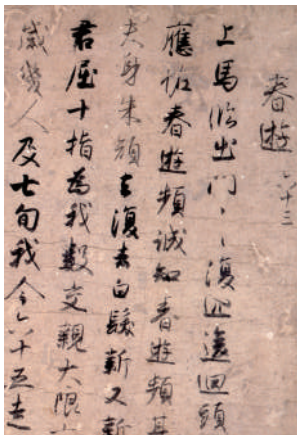 春遊 六十三
上馬臨出門〻〻復巡逡回頭
應怪春遊頻誠知春遊頻其
夫身朱顏去復去白髮新又新
君屈十指為我數交親大限
歲幾人及七旬我今六十五走